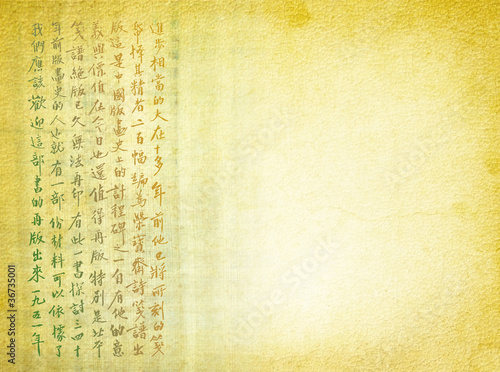 進步相當的大在十多年前他已將所刻的箋
擇其精者二百幅編為榮寶齋詩箋譜出
版這是中國版畫史上的計程碑之一自有他的意
義與價值在今日也還值得再版特別是北平
箋譜絕版已久無法再印有此一書探討三四十
年前版畫史的人也就有一部份材料可以依據了
我們應該歡迎這部書的再版出來一九五一年
Adobe Stock | #36735001